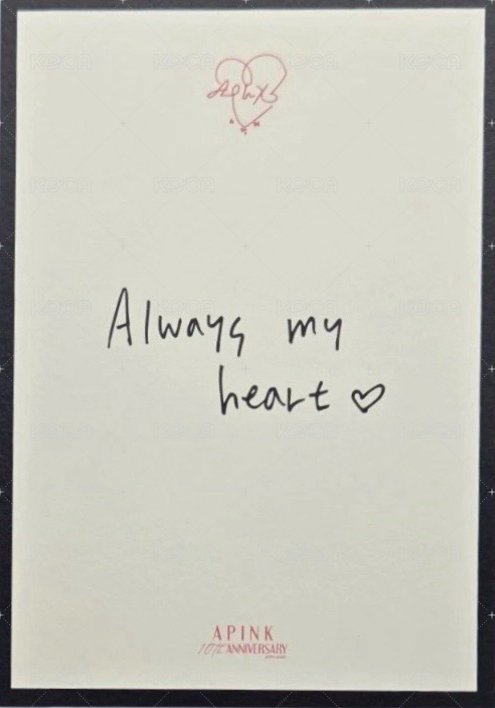 Always my
heart ♡
APINK
10th ANNIVERSARY